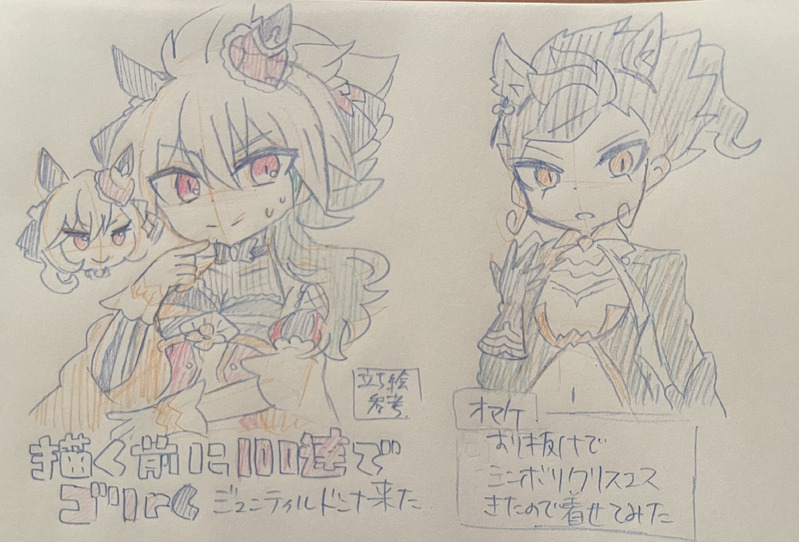 立ち絵
参考
描く前に100連で
ゴリゅく ジュニティルドニナ来た
オマケ
おり抜けで
シンボリクリスエス
きたので着せてみた